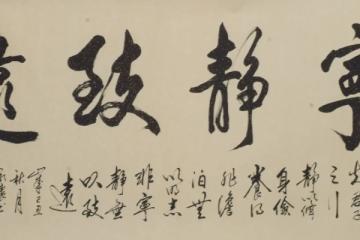 寧靜致遠
君子
之行
静以修
身儉
養德
非澹
泊無
以明志
非寧
静無
以致
遠
己丑
秋月